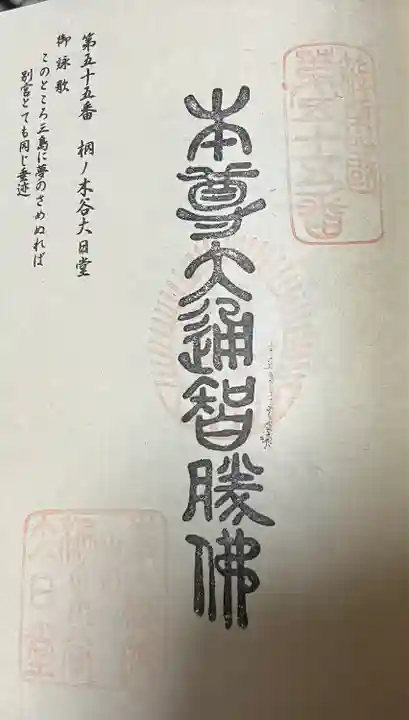 第五十五番
本尊大通智勝佛
第五十五番　桐ノ木谷大日堂
御詠歌
このところ三島に夢のさめぬれば
別宮とても同じ垂迹
大日堂